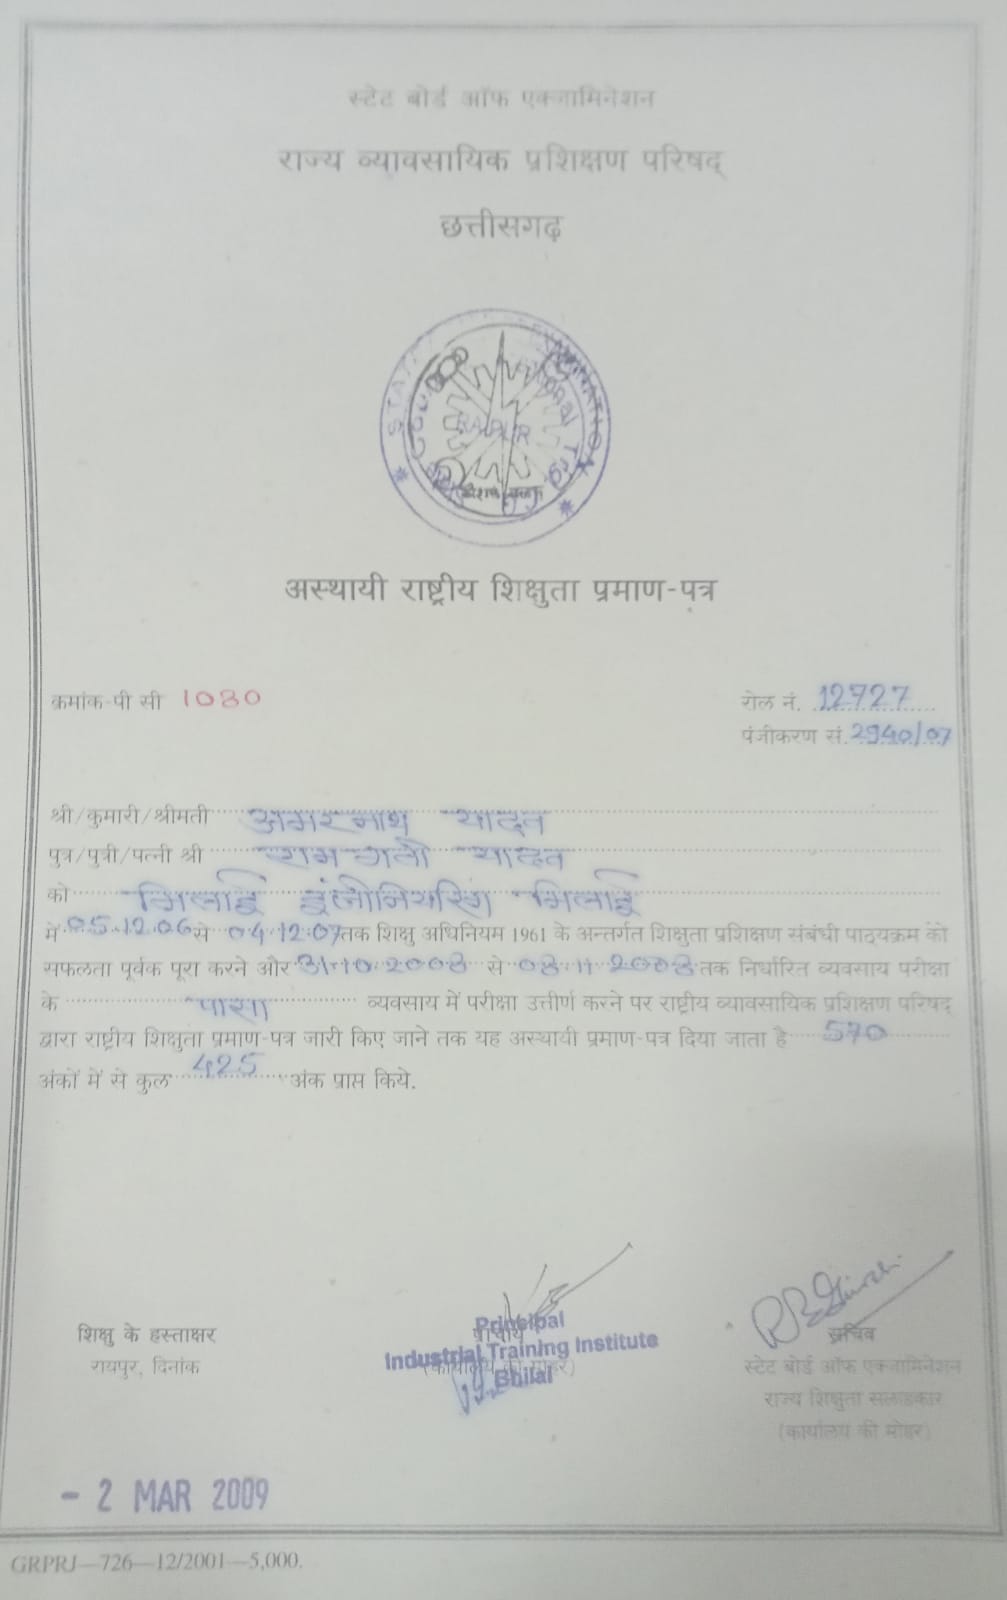 स्टेट बोर्ड ऑफ एक्जामिनेशन
राज्य व्यावसायिक प्रशिक्षण परिषद्
छत्तीसगढ़
RAIPUR
अस्थायी राष्ट्रीय शिक्षुता प्रमाण-पत्र
क्रमांक-पी सी 1080
रोल नं. 12727
पंजीकरण सं. 2940/07
श्री/कुमारी/श्रीमती अमरनाथ यादव
पुत्र/पुत्री/पत्नी श्री रामगती यादव
को भिलाई इंजीनियरिंग भिलाई
में 05.12.06 से 04.12.07 तक शिक्षु अधिनियम 1961 के अन्तर्गत शिक्षुता प्रशिक्षण संबंधी पाठ्यक्रम को
सफलता पूर्वक पूरा करने और 31.10.2008 से 08.11.2008 तक निर्धारित व्यवसाय परीक्षा
के पासा व्यवसाय में परीक्षा उत्तीर्ण करने पर राष्ट्रीय व्यावसायिक प्रशिक्षण परिषद्
द्वारा राष्ट्रीय शिक्षुता प्रमाण-पत्र जारी किए जाने तक यह अस्थायी प्रमाण-पत्र दिया जाता है 570
अंकों में से कुल 425 अंक प्राप्त किये.
शिक्षु के हस्ताक्षर
रायपुर, दिनांक
प्राचार्य
(कार्यालय की मोहर)
Principal
Industrial Training Institute
Bhilai
सचिव
स्टेट बोर्ड ऑफ एक्जामिनेशन
राज्य शिक्षुता सलाहकार
(कार्यालय की मोहर)
- 2 MAR 2009
GRPRJ—726—12/2001—5,000.